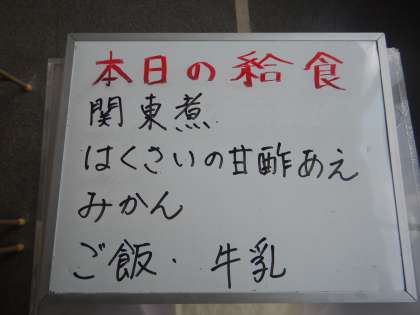 本日の給食
関東煮
はくさいの甘酢あえ
みかん
ご飯・牛乳